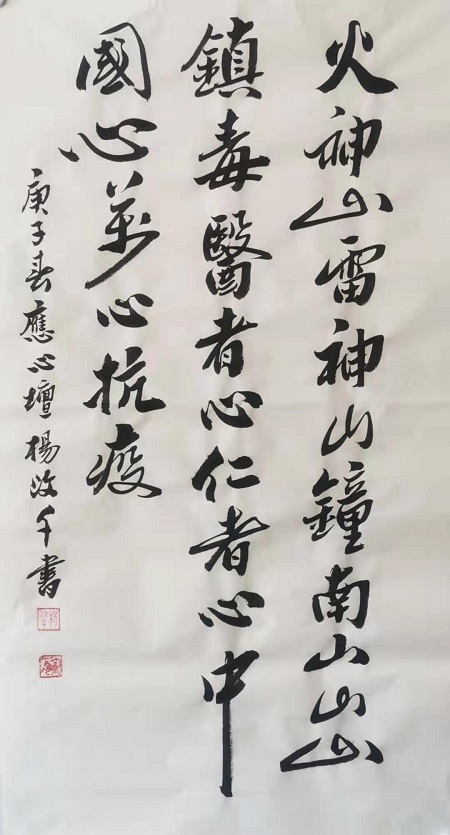 火神山雷神山鐘南山山山
鎮毒醫者心仁者心中
國心萬心抗疫
庚子春應心壇楊改千書